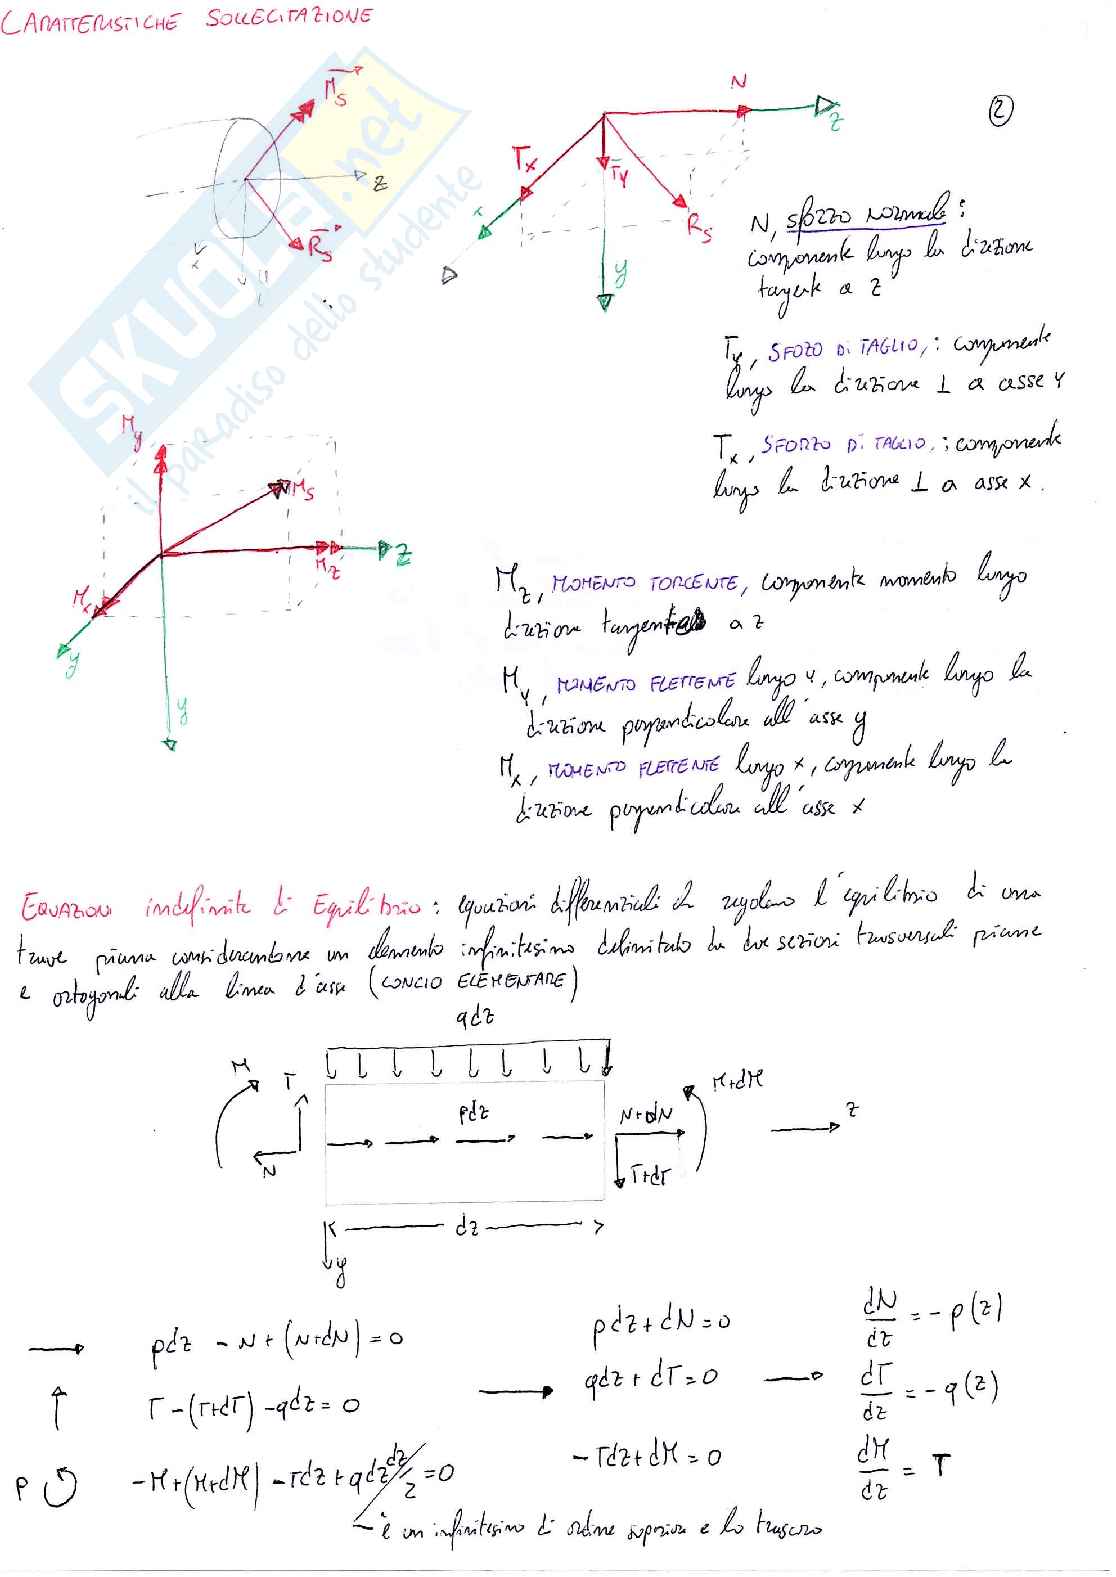 CARATTERISTICHE SOLLECITAZIONE
2
SKUOLA.net
il paradiso dello studente
Ms
Rs
z
x
y
N
z
Tx
Ty
Rs
x
y
N, sforzo normale :
componente lungo la direzione
tangente a z
Ty, SFOZO DI TAGLIO, : componente
lungo la direzione ⊥ a asse y
Tx, SFORZO DI TAGLIO, : componente
lungo la direzione ⊥ a asse x.
My
Ms
Mz
z
Mx
y
y
Mz, MOMENTO TORCENTE, componente momento lungo
direzione tangente a z
My, MOMENTO FLETTENTE lungo y, componente lungo la
direzione perpendicolare all'asse y
Mx, MOMENTO FLETTENTE lungo x, componente lungo la
direzione perpendicolare all'asse x
EQUAZIONI indefinite di Equilibrio : equazioni differenziali che regolano l'equilibrio di una
trave piana considerandone un elemento infinitesimo delimitato da due sezioni trasversali piane
e ortogonali alla linea d'asse (CONCIO ELEMENTARE)
qdz
M
T
N
pdz
N+dN
T+dT
M+dM
z
dz
y
pdz - N + (N+dN) = 0
pdz + dN = 0
dN/dz = - p(z)
T - (T+dT) - qdz = 0
qdz + dT = 0
dT/dz = - q(z)
P
-M + (M+dM) - Tdz + qdz dz/2 = 0
-Tdz + dM = 0
dM/dz = T
è un infinitesimo di ordine superiore e lo trascuro